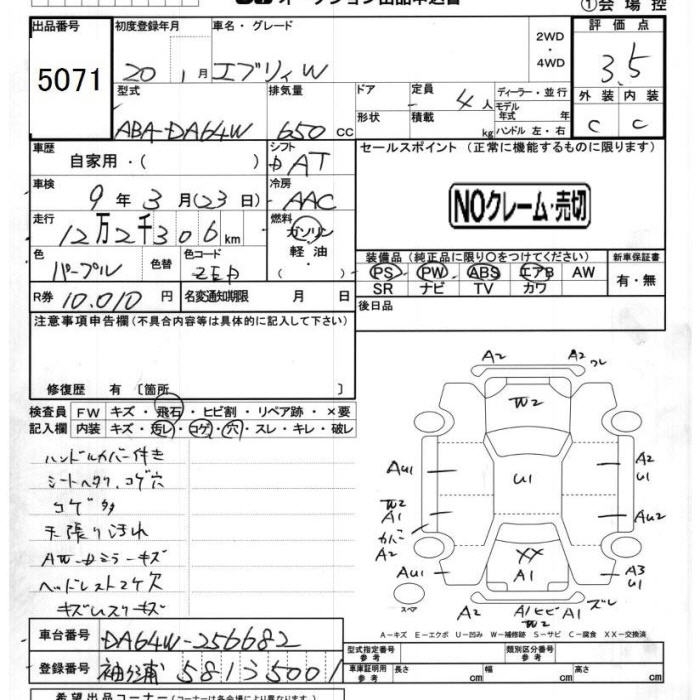 オークション出品申込書
①会場控
出品番号 初度登録年月 車名・グレード 2WD・4WD 評価点
5071 20 1月 エブリィW 3.5
型式 排気量 ドア 定員 4人 ディーラー・並行 外装 内装
ABA-DA64W 650 CC 形状 積載 kg モデル年式 年 C C
ハンドル 左・右
車歴 自家用・( ) シフト AT セールスポイント (正常に機能するものに限ります)
車検 9年3月(23日) 冷房 AAC
NOクレーム・売切
走行 12万2千306km 燃料 ガソリン 軽油 ( )
色 パープル 色替 色コード ZEP
装備品 (純正品に限り○をつけてください) 新車保証書
PS PW ABS エアB AW 有・無
SR ナビ TV カワ
R券 10.010円 名変通知期限 月 日 後日品
注意事項申告欄 (不具合内容等は具体的に記入して下さい)
修復歴 有 〔箇所 〕
検査員 FW キズ・飛石・ヒビ割・リペア跡・×要
記入欄 内装 キズ・汚レ・コゲ・穴・スレ・キレ・破レ
ハンドルカバー付き
シートヘタリ、コゲ穴
コゲ多
天張り汚れ
ヘッドレスト
A2 A2
W2
AU1 U1 A2 U1
W2 A1 AU2
A2
AU1 XX A1 A3 U1
スペア
A2 A1 ヒビ A1 ズレ
W2
A-キズ E-エクボ U-凹み W-補修跡 S-サビ C-腐食 XX-交換済
車台番号 DA64W-256682 型式指定番号 参考 類別区分番号 参考
登録番号 袖ヶ浦 581 5001 車庫証明用 参考 長さ cm 幅 cm 高さ cm
希望出品コーナー